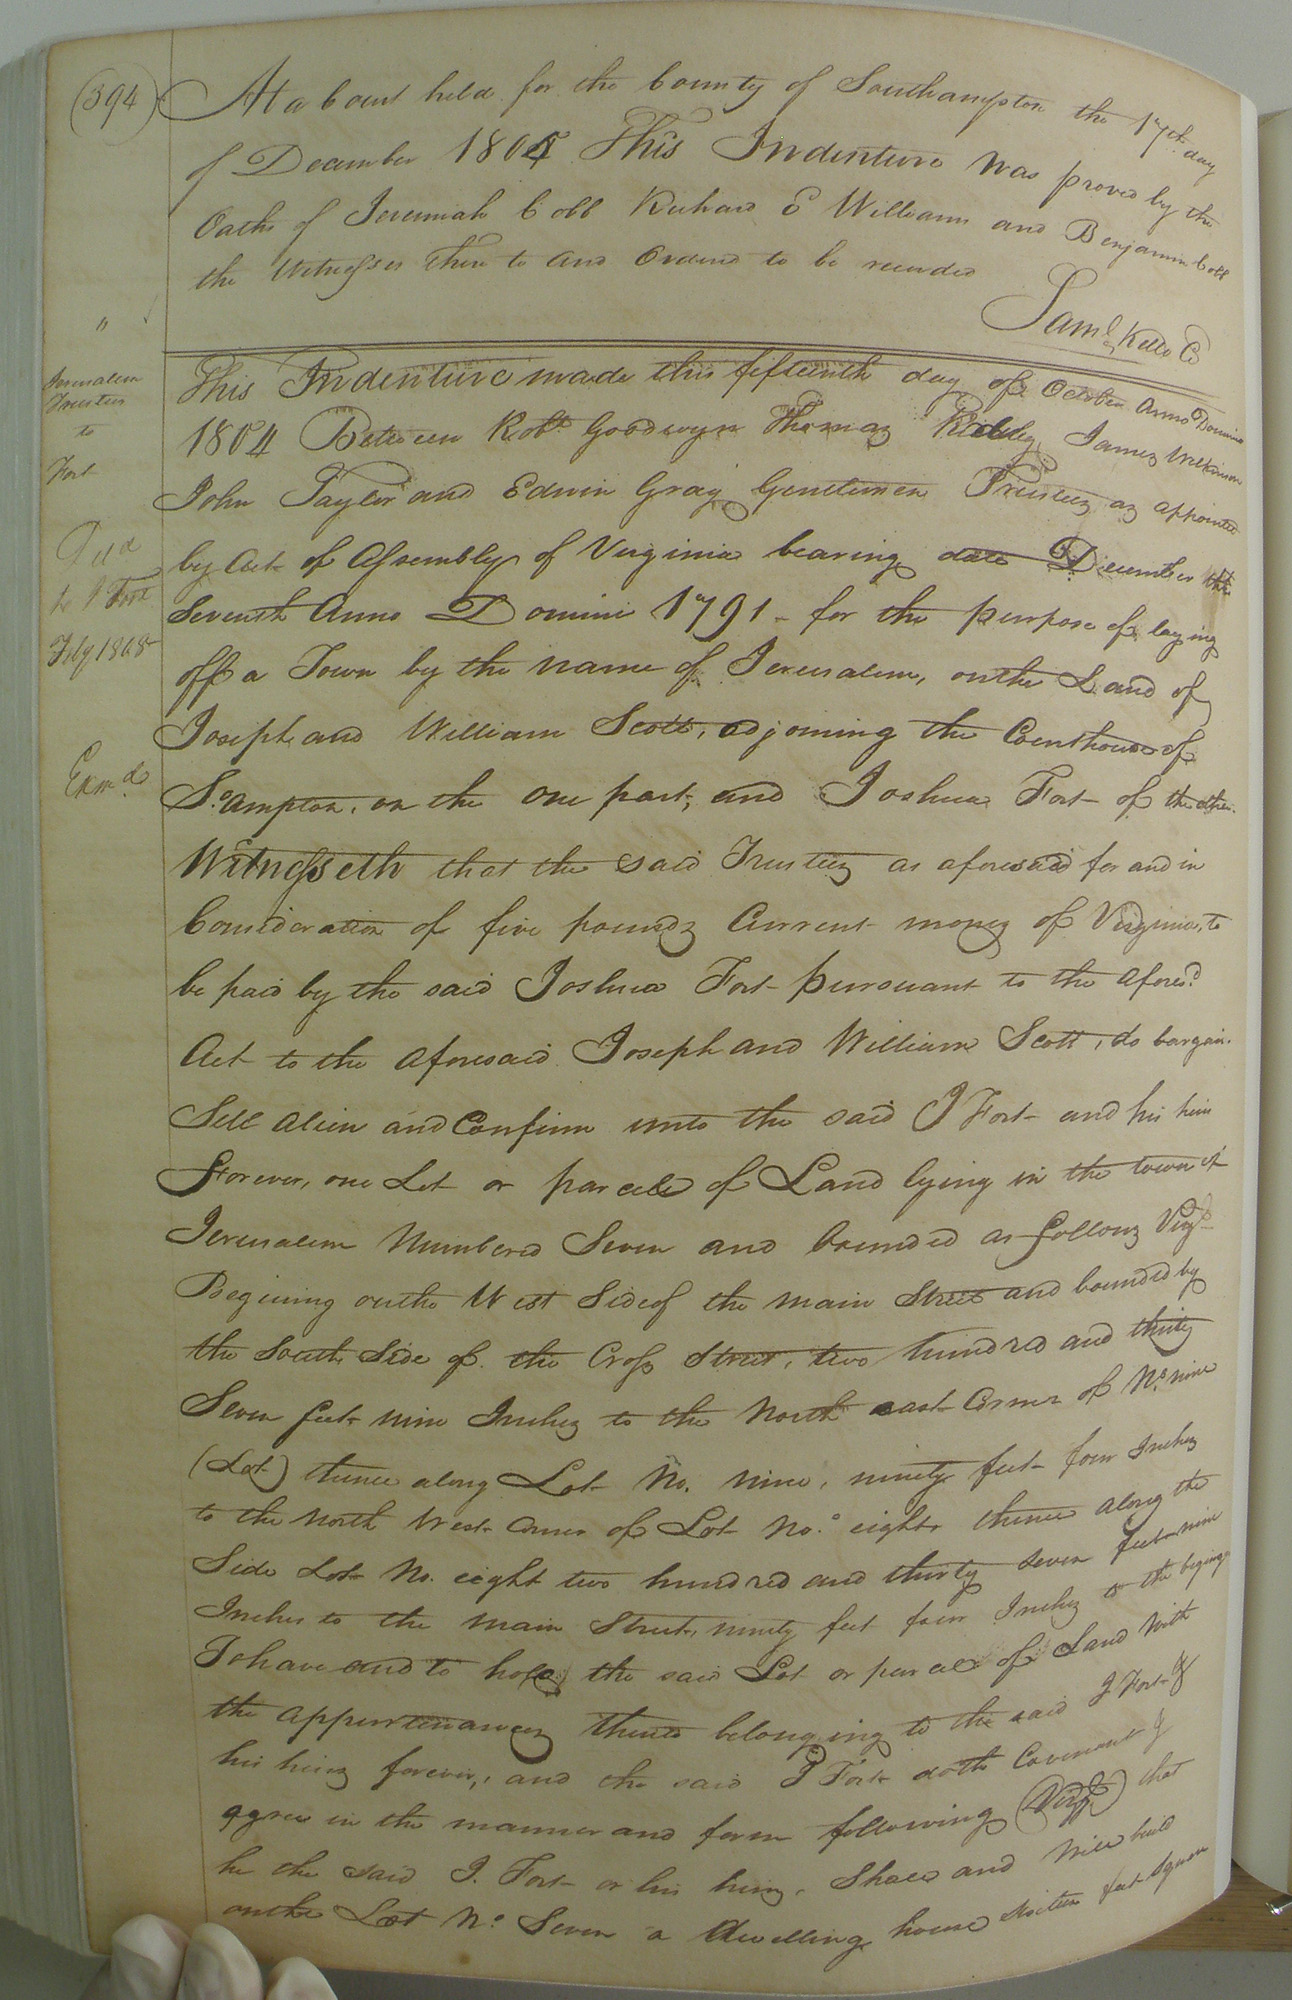 (394)
At a Court held for the County of Southampton the 17th day
of December 1804 This Indenture was proved by the
Oaths of Jeremiah Cobb Richard E Williams and Benjamin Cobb
the Witnesses there to and Ordered to be recorded
Saml Kello C
"
Jerusalem
Trustees
to
Fort
Deld
to J Fort
Feby 1808
Exmd
This Indenture made this fifteenth day of October Anno Domini
1804 Between Robt Goodwyn Thomas Ridley James Wilkinson
John Taylor and Edwin Gray Gentlemen Trustees as appointed
by Act of Assembly of Virginia bearing date December the
Seventh Anno Domini 1791 - for the purpose of laying
off a Town by the name of Jerusalem, on the Land of
Joseph and William Scott, adjoining the Courthouse of
So.ampton, on the one part, and Joshua Fort - of the other.
Witnesseth that the said Trustees as aforesaid for and in
Consideration of five pounds Current money of Virginia, to
be paid by the said Joshua Fort pursuant to the afores.d
Act to the aforesaid Joseph and William Scott, do bargain.
Sell alien and Confirm unto the said J Fort - and his heirs
Forever, one Lot or parcele of Land lying in the town of
Jerusalem Numbered Seven and bounded as follows Vizt
Begining on the West Side of the main Street and bounded by
the South Side of the Cross Street, two hundred and thirty
Seven feet nine Inches to the North east Corner of No. nine
(Lot) thence along Lot No. nine, ninety feet four Inches
to the North West Corner of Lot No. eight thence along the
Side Lot No. eight two hundred and thirty seven feet nine
Inches to the main Street, ninety feet four Inches to the beging
To have and to hold the said Lot or parcel of Land with
the appurtenances thereto belonging to the said J Fort &
his heirs forever, and the said J Fort doth Covenant &
agree in the manner and form following (Vizt) that
he the said J. Fort or his heirs, Shall and will build
on the Lot No. Seven a dwelling house sixteen feet Square